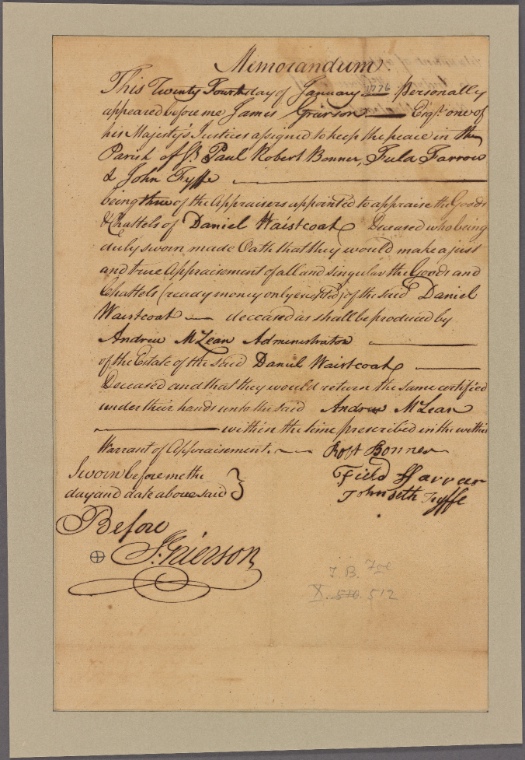 Memorandum.
This Twenty Fourth day of January 1776 Personally
appeared before me James Grierson Esqr. one of
his Majesty's Justices assigned to keep the peace in the
Parish of St. Paul Robert Bonner, Field Farrow
& John Fyffe
being three of the Appraisers appointed to appraise the Goods
& Chattels of Daniel Waistcoat Deceased who being
duly sworn made Oath that they would make a just
and true Appraisement of all and singular the Goods and
Chattels (ready money only excepted) of the said Daniel
Waistcoat deceased as shall be produced by
Andrew McLean Administrator
of the Estate of the said Daniel Waistcoat
Deceased and that they would return the same certified
under their hands unto the said Andrew McLean
within the time prescribed in the within
Warrant of Appraisement. Robt Bonner
Sworn before me the Field Farrar
day and date above said } John Fyffe
Before
J. Grierson
T B.
X. 512